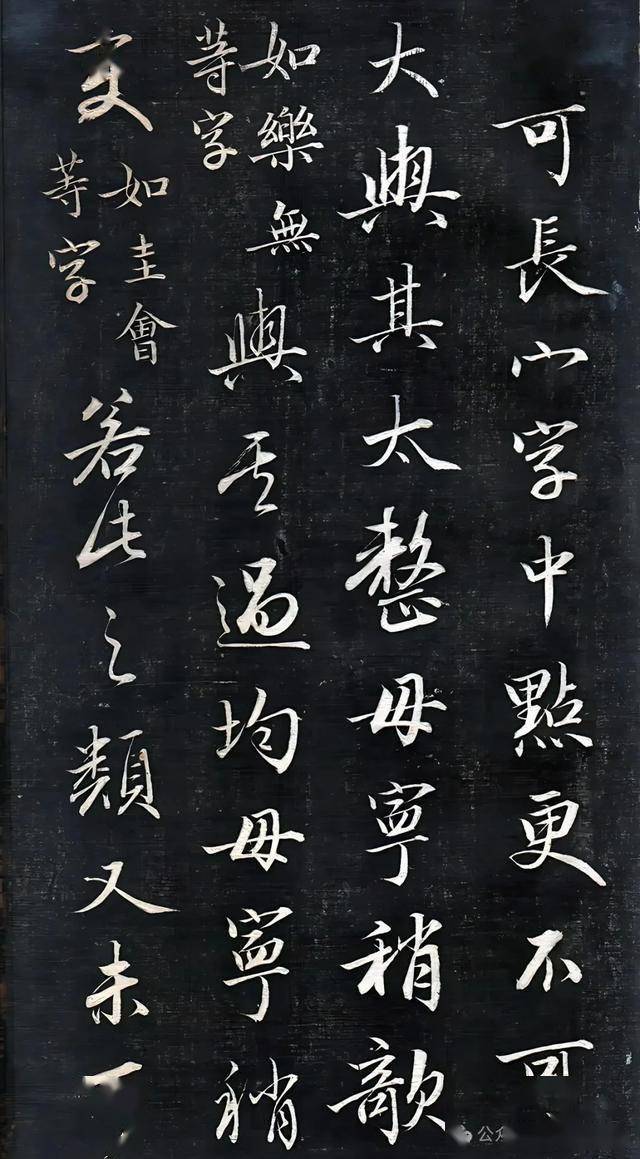 可長宀字中點更不可
大與其太整毋寧稍欹
如樂無
等字
與其過均毋寧稍
如圭會
等字
若此之類又未
公